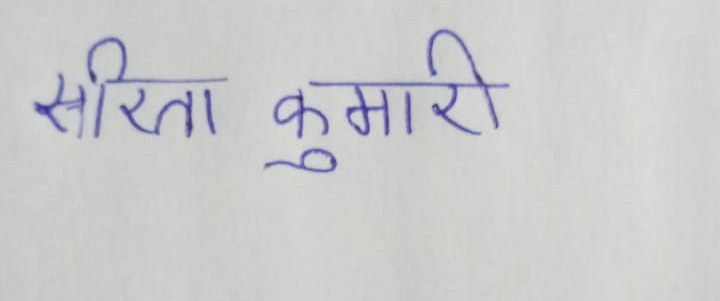 सरिता कुमारी